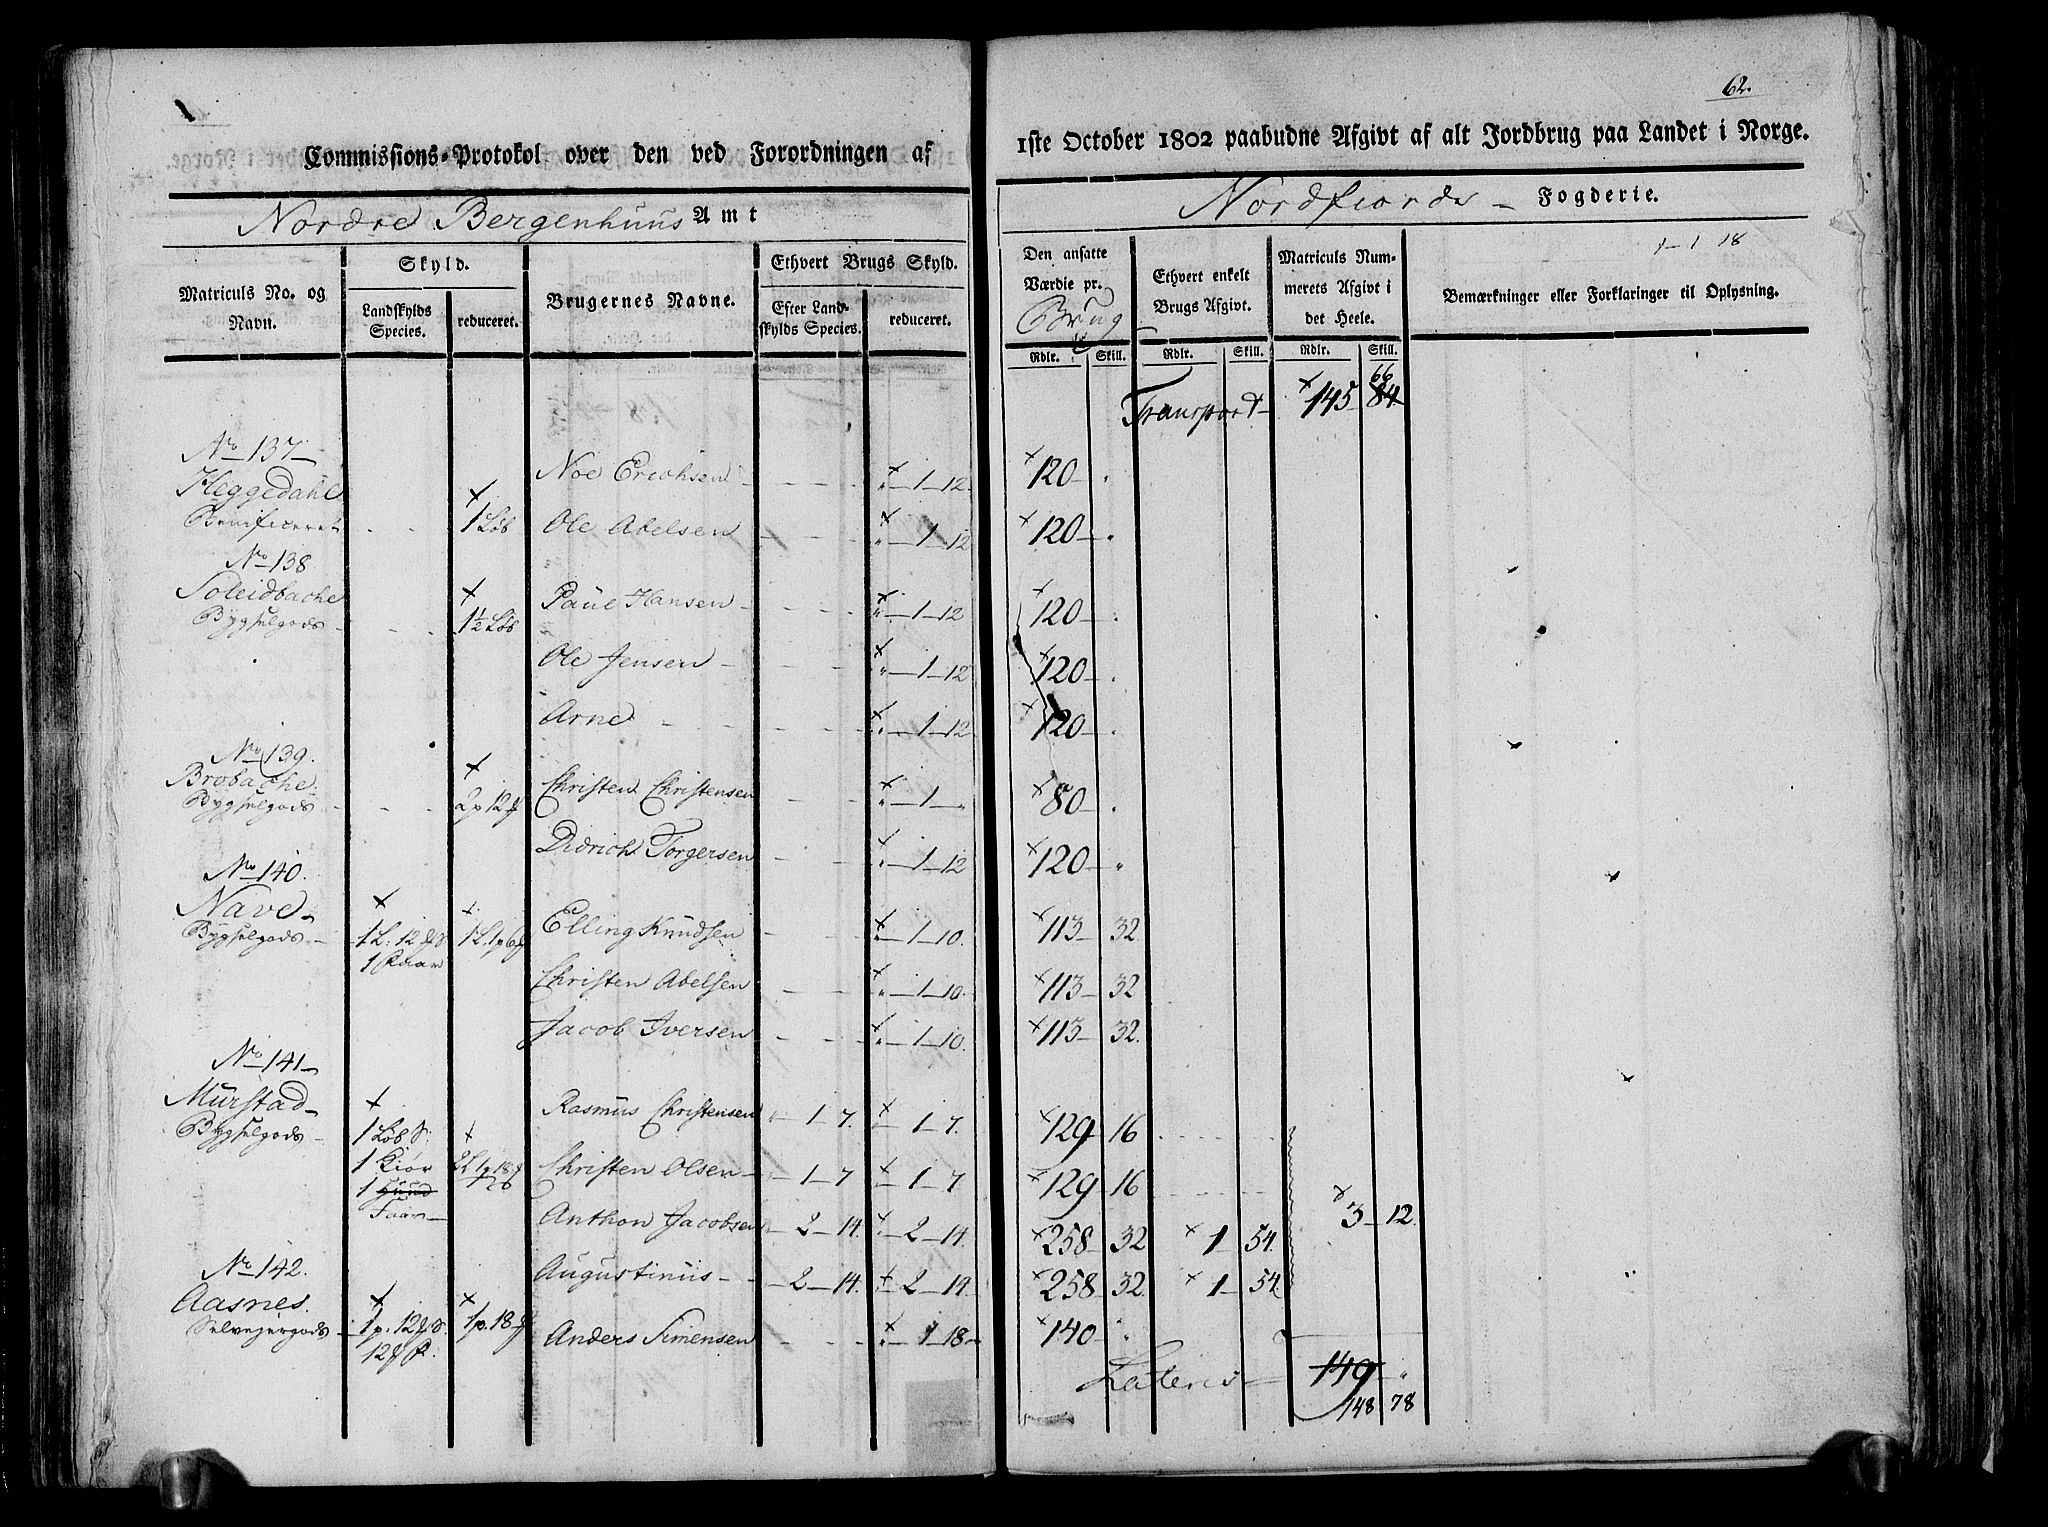 62.
Commissions-Protokol over den ved Forordningen af 1ste October 1802 paabudne Afgivt af alt Jordbrug paa Landet i Norge.
Nordre Bergenhuus Amt
Nordfiords Fogderie.
1-1 18
Matriculs No. og Navn.
Skyld.
Landskylds Species.
reduceret.
Brugernes Navne.
Ethvert Brugs Skyld.
Efter Landskylds Species.
reduceret.
Den ansatte Værdie pr. Brug
Rdlr. Skill.
Ethvert enkelt Brugs Afgivt.
Rdlr. Skill.
Matriculs Nummerets Afgivt i det Heele.
Rdlr. Skill.
Bemærkninger eller Forklaringer til Oplysning.
Transport 145 84. 66
No 137
Heggedahl
Benificeret 1 Løb
Noe Erichsen " 1 12 120 "
Ole Abelsen " 1 12 120 "
No 138.
Soleidbache
Bygselgods 1½ Løb
Paul Hansen " 1 12 120 "
Ole Jensen " 1 12 120 "
Arne " 1 12 120 "
No 139.
Brobache
Bygselgods 2p 12
Christen Christensen " 1 " 80 "
Didrich Torgersen " 1 12 120 "
No 140.
Nave
Bygselgods 1 L. 12 S 1L. 1p 6
Elling Knudsen " 1 10. 113 32.
Christen Abelsen " 1 10. 113 32
Jacob Iversen " 1 10. 113 32.
No 141
Murstad
Bygselgods 1 Løb S.
1 Kiør 2L 1p 18
1 Huud
Faar
Rasmus Christensen " 1 7. " 1 7. 129 16
Christen Olsen " 1 7 " 1 7 129 16
Anthon Jacobsen " 2 14. " 2 14. 258 32 1 54.
3 12.
Augustinus " 2 14. " 2 14. 258 32. 1 54.
No 142.
Aasnes.
Selvejergods 1p. 12 S. 1p. 18
12
Anders Simensen " 1 18 140 "
Lateris 149 "
148 78